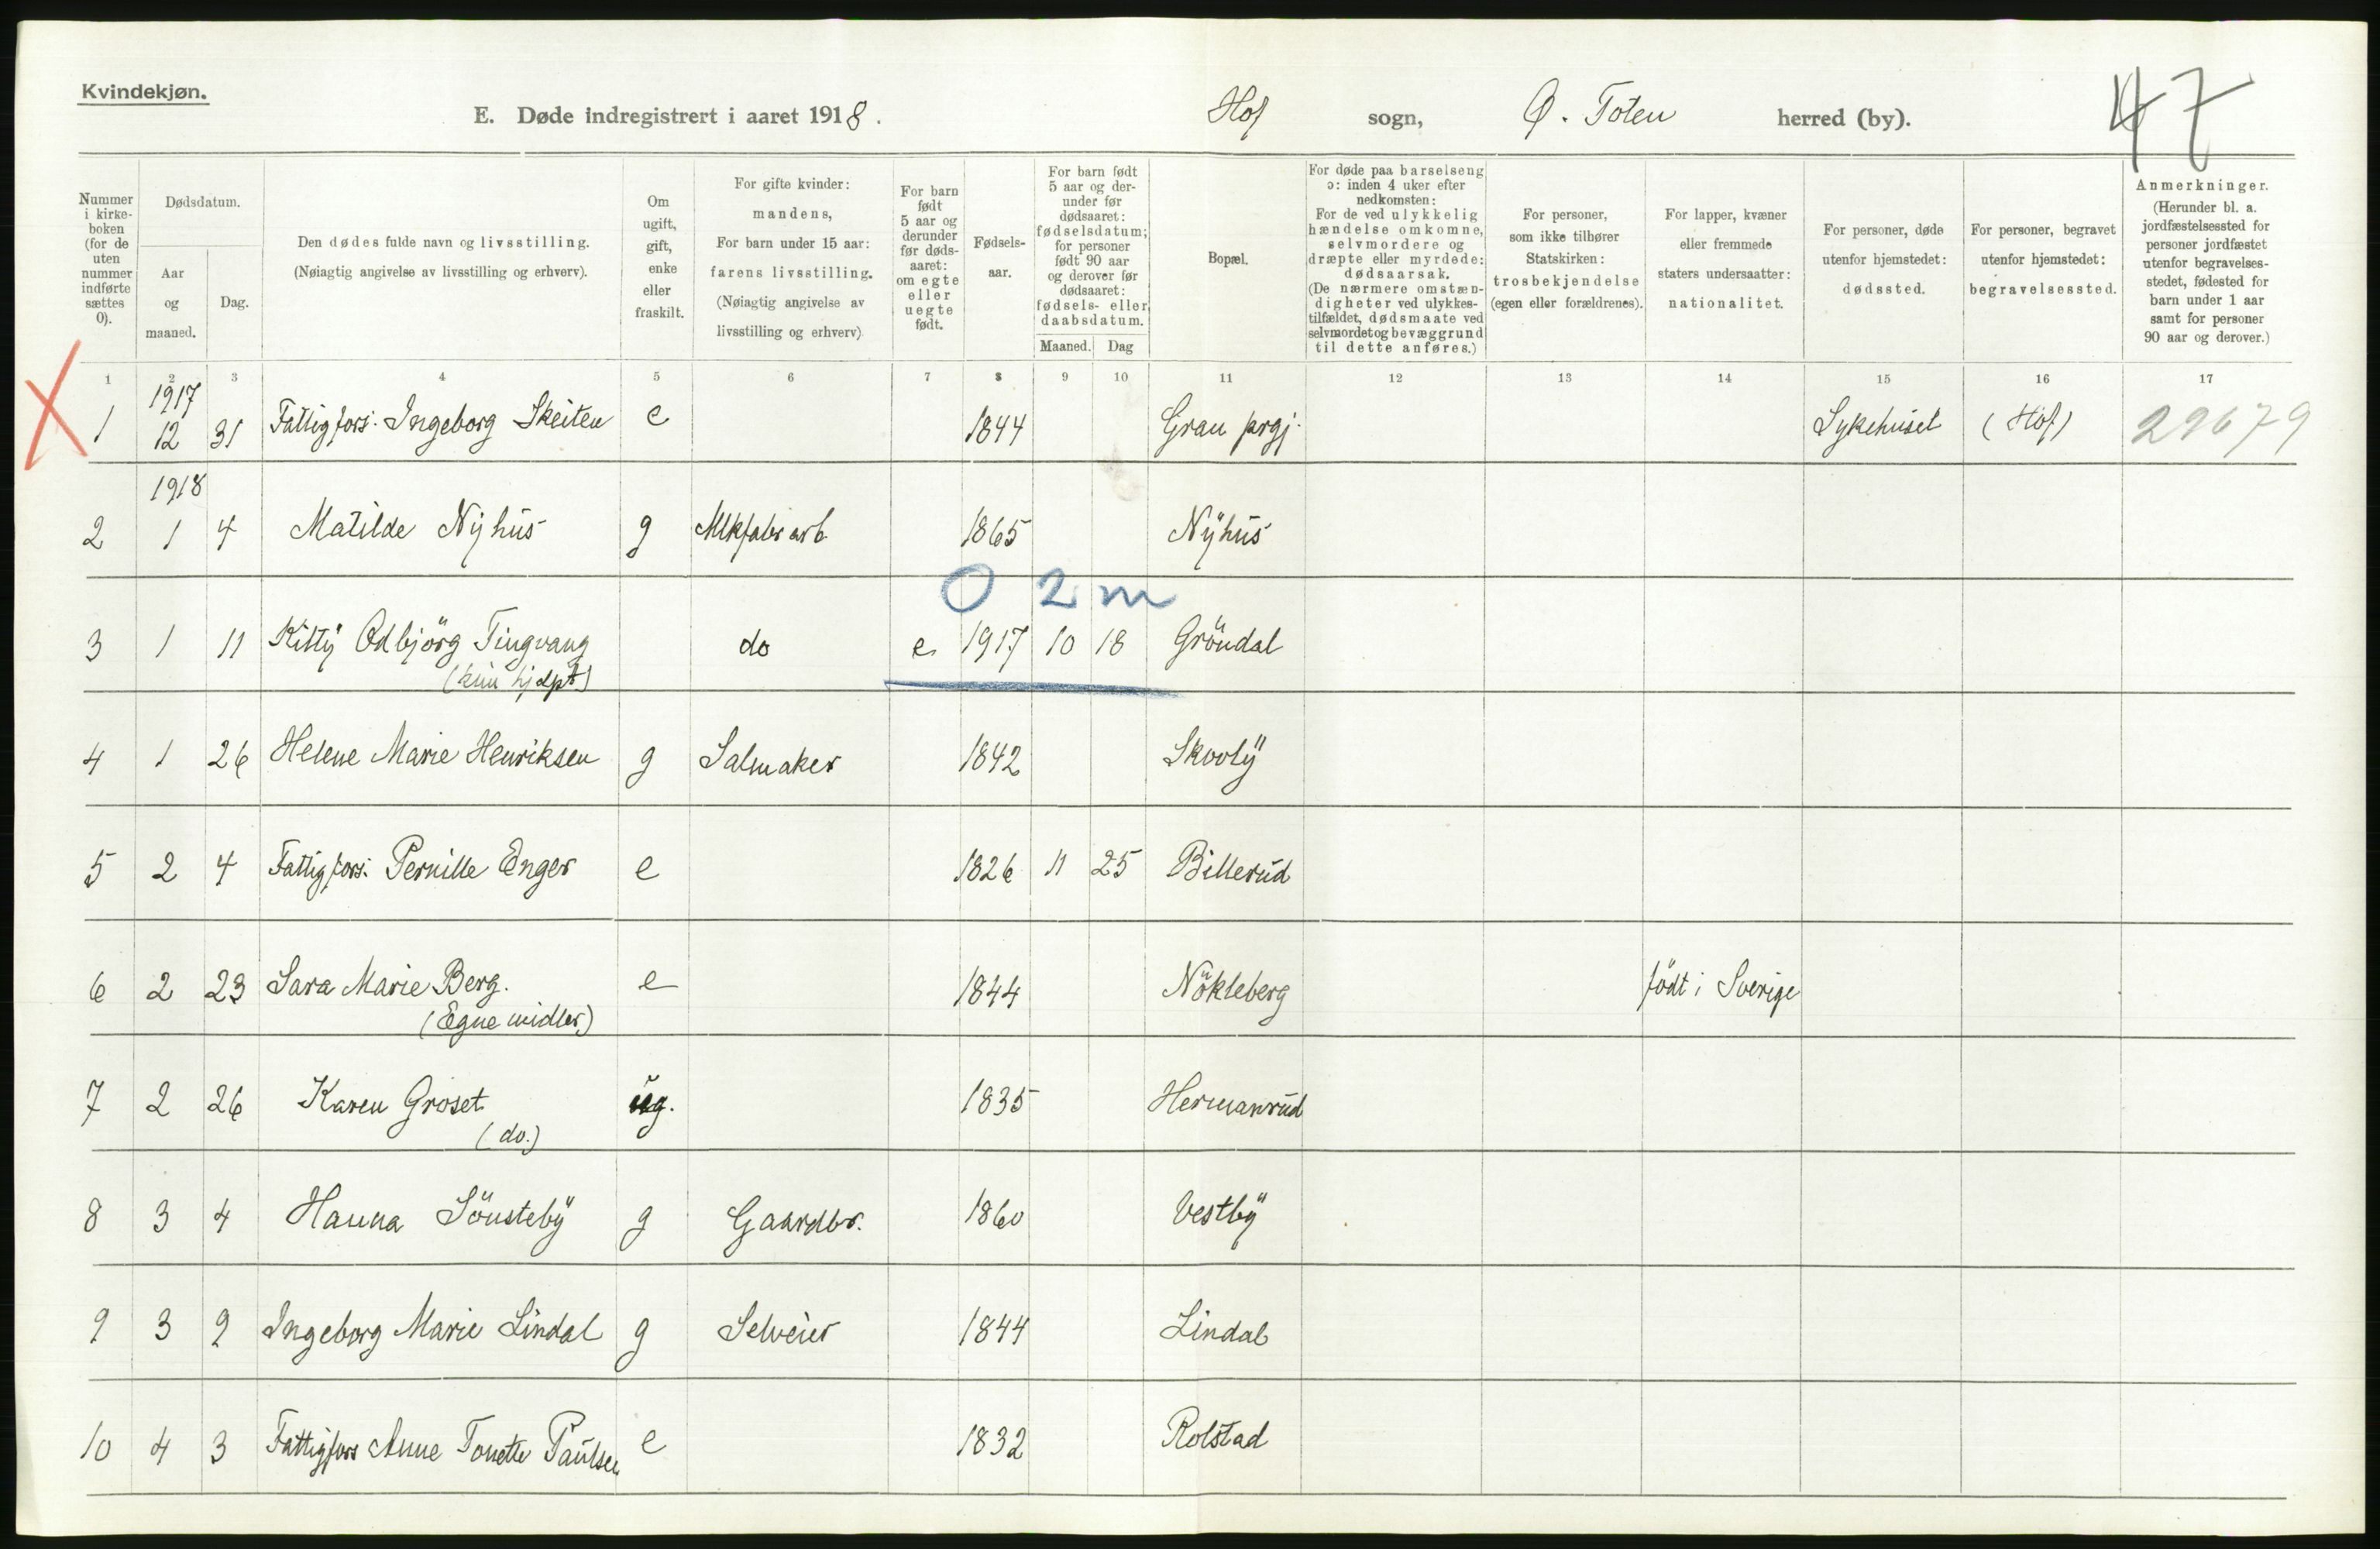 Kvindekjøn.
E. Døde indregistrert i aaret 1918. Hof sogn, Ø. Toten herred (by). 47
Nummer i kirke-boken (for de uten nummer indførte sættes 0).
Dødsdatum.
Aar og maaned.
Dag.
Den dødes fulde navn og livsstilling.
(Nøiagtig angivelse av livsstilling og erhverv).
Om ugift, gift, enke eller fraskilt.
For gifte kvinder: mandens,
For barn under 15 aar: farens livsstilling.
(Nøiagtig angivelse av livsstilling og erhverv)
For barn født 5 aar og derunder før døds-aaret: om egte eller uegte født.
Fødsels-aar.
For barn født 5 aar og der-under før dødsaaret: fødselsdatum; for personer født 90 aar og derover før dødsaaret: fødsels- eller daabsdatum.
Maaned. Dag
Bopæl.
For døde paa barselseng ɔ: inden 4 uker efter nedkomsten:
For de ved ulykkelig hændelse omkomne, selvmordere og dræpte eller myrdede: dødsaarsak.
(De nærmere omstæn-digheter ved ulykkes-tilfældet, dødsmaate ved selvmordet og bevæggrund til dette anføres.)
For personer, som ikke tilhører Statskirken: trosbekjendelse (egen eller forældrenes).
For lapper, kvæner eller fremmede staters undersaatter: nationalitet.
For personer, døde utenfor hjemstedet: dødssted.
For personer, begravet utenfor hjemstedet: begravelsessted.
Anmerkninger.
(Herunder bl. a. jordfæstelsessted for personer jordfæstet utenfor begravelses-stedet, fødested for barn under 1 aar samt for personer 90 aar og derover.)
1 2 3 4 5 6 7 8 9 10 11 12 13 14 15 16 17
1917
1 12 31 Fattigfors. Ingeborg Skeiten e 1844 Gran prgj. Sykehuset (Hof) 29679
1918
2 1 4 Matilde Nyhus g Mlkfabrarb 1865 Nyhus
0 2 m
3 1 11 Kitty Odbjörg Tingvang do e 1917 10 18 Gröndal
(kun hjdpt)
4 1 26 Helene Marie Henriksen g Salmaker 1842 Skovly
5 2 4 Fattigfors. Pernille Enger e 1826 11 25 Billerud
6 2 23 Sara Marie Berg. e 1844 Nökleberg født i Sverige
(Egne midler)
7 2 26 Karen Groset ug. 1835 Hermanrud
(do.)
8 3 4 Hanna Sönsteby g Gaardbr. 1860 Vestby
9 3 9 Ingeborg Marie Lindal g Selveier 1844 Lindal
10 4 3 Fattigfors Anne Tonette Paulsen e 1832 Rolstad